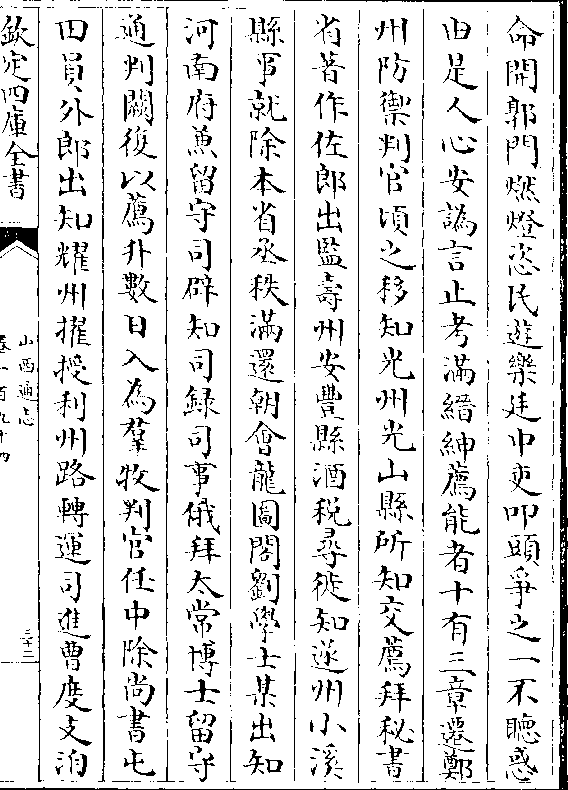 命開郭門燃燈恣民遊樂廷中吏叩頭爭之一不聽惑
由是人心安譌言止考滿縉紳薦能者十有三章遷鄭
州防禦判官頃之移知光州光山縣所知交薦拜秘書
省著作佐郎出監壽州安豐縣酒税尋徙知遂州小溪
縣事就除本省丞秩滿還朝會龍圖閣劉學士某出知
河南府兼留守司辟知司録司事俄拜太常博士留守
通判闕復以薦升數日入為羣牧判官任中除尚書屯
田員外郎出知耀州擢授利州路轉運司進曹度支洎
欽定四庫全書
山西通志
卷一百九十四
三十二